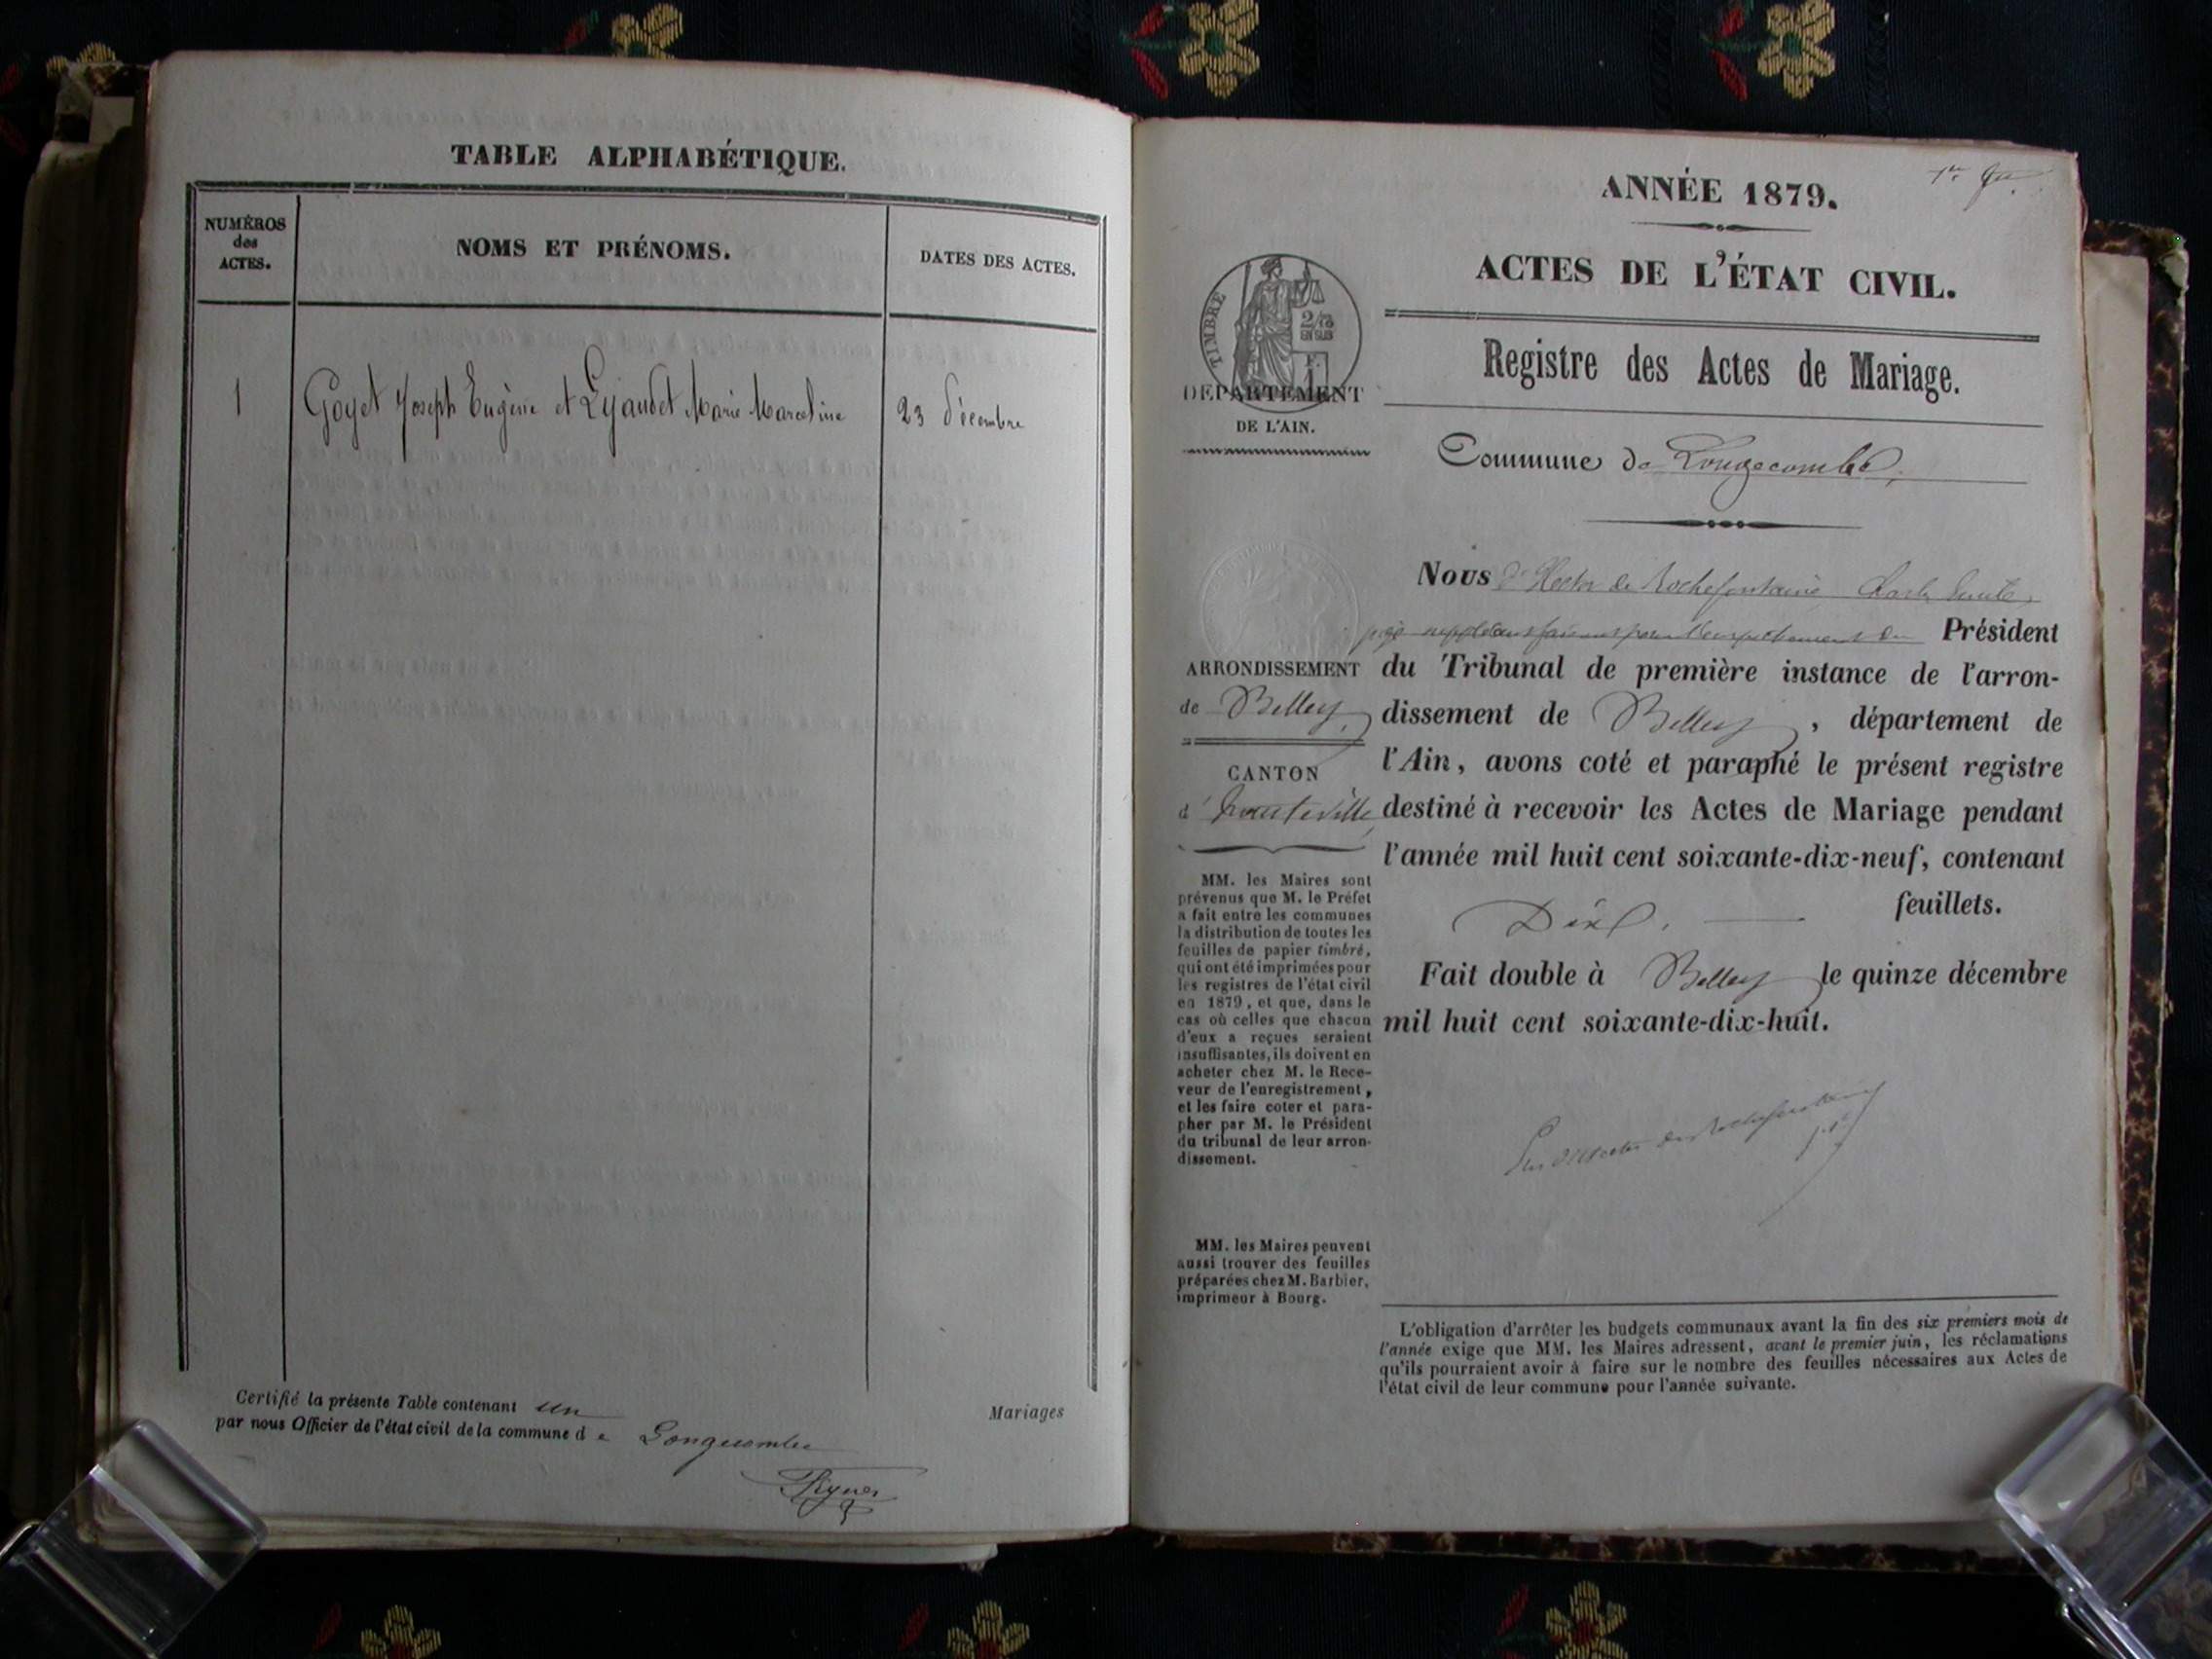 TABLE ALPHABÉTIQUE.
NUMÉROS
des
ACTES.
NOMS ET PRÉNOMS.
DATES DES ACTES.
1
Goyet Joseph Eugène et Lyaudet Marie Marceline
23 décembre
Certifié la présente Table contenant un
Mariages
par nous Officier de l'état civil de la commune d e Longecombe
ANNÉE 1879.
ACTES DE L'ÉTAT CIVIL.
Registre des Actes de Mariage.
Commune de Longecombe,
TIMBRE
2/10
EN SUS
DÉPARTEMENT
DE L'AIN.
ARRONDISSEMENT
de Belley,
CANTON
d' hauteville,
MM. les Maires sont
prévenus que M. le Préfet
a fait entre les communes
la distribution de toutes les
feuilles de papier timbré,
qui ont été imprimées pour
les registres de l'état civil
en 1879, et que, dans le
cas où celles que chacun
d'eux a reçues seraient
insuffisantes, ils doivent en
acheter chez M. le Rece-
veur de l'enregistrement,
et les faire coter et para-
pher par M. le Président
du tribunal de leur arron-
dissement.
MM. les Maires peuvent
aussi trouver des feuilles
préparées chez M. Barbier,
imprimeur à Bourg.
Nous d'Hector de Rochefontaine, Charles Emile,
juge suppléant faisant pour l'empêchement du Président
du Tribunal de première instance de l'arron-
dissement de Belley, département de
l'Ain, avons coté et paraphé le présent registre
destiné à recevoir les Actes de Mariage pendant
l'année mil huit cent soixante-dix-neuf, contenant
Dix. feuillets.
Fait double à Belley le quinze décembre
mil huit cent soixante-dix-huit.
L'obligation d'arrêter les budgets communaux avant la fin des six premiers mois de
l'année exige que MM. les Maires adressent, avant le premier juin, les réclamations
qu'ils pourraient avoir à faire sur le nombre des feuilles nécessaires aux Actes de
l'état civil de leur commune pour l'année suivante.